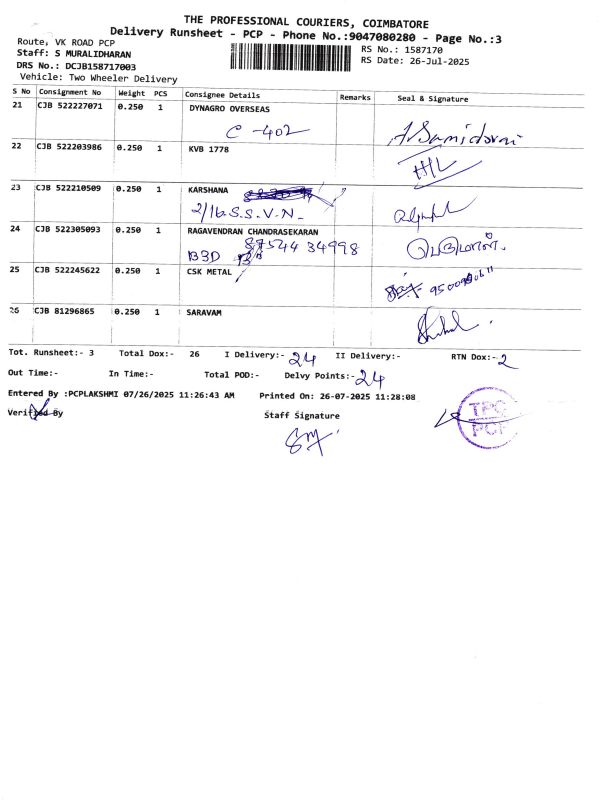 THE PROFESSIONAL COURIERS, COIMBATORE
Delivery Runsheet - PCP - Phone No.:9047080280 - Page No.:3
Route, VK ROAD PCP
RS No.: 1587170
Staff: S MURALIDHARAN
RS Date: 26-Jul-2025
DRS No.: DCJB158717003
Vehicle: Two Wheeler Delivery
S No Consignment No Weight PCS Consignee Details Remarks Seal & Signature
21 CJB 522227071 0.250 1 DYNAGRO OVERSEAS
C-402
22 CJB 522203986 0.250 1 KVB 1778
23 CJB 522210509 0.250 1 KARSHANA
2/16.S.S.V.N-
24 CJB 522305093 0.250 1 RAGAVENDRAN CHANDRASEKARAN
87544 34998
B3D பெருமாள்.
25 CJB 522245622 0.250 1 CSK METAL
26 CJB 81296865 0.250 1 SARAVAM
Tot. Runsheet:- 3 Total Dox:- 26 I Delivery:- 24 II Delivery:- RTN Dox:- 2
Out Time:- In Time:- Total POD:- Delvy Points:- 24
Entered By :PCPLAKSHMI 07/26/2025 11:26:43 AM Printed On: 26-07-2025 11:28:08
Verified By Staff Signature
TPC
PCP